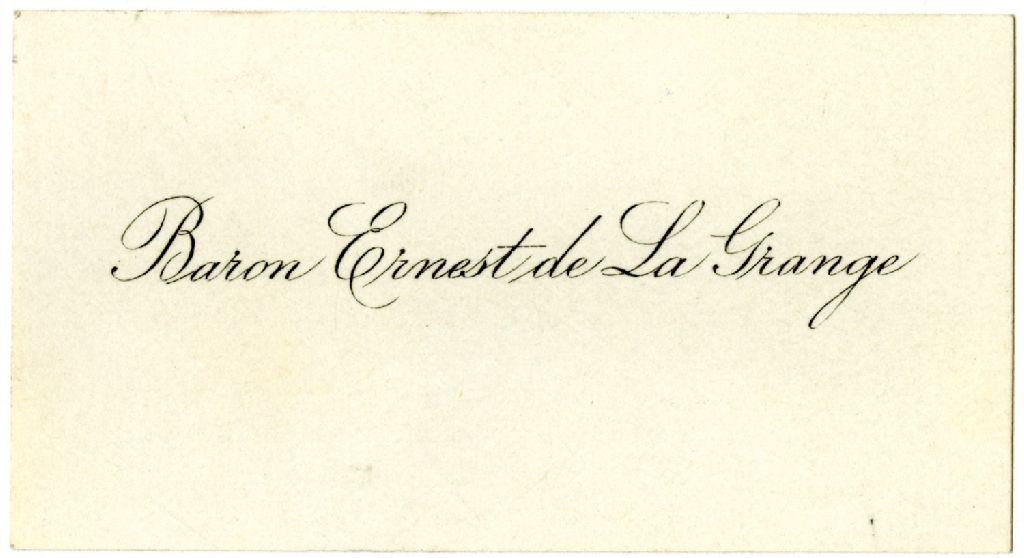 Baron Ernest de La Grange